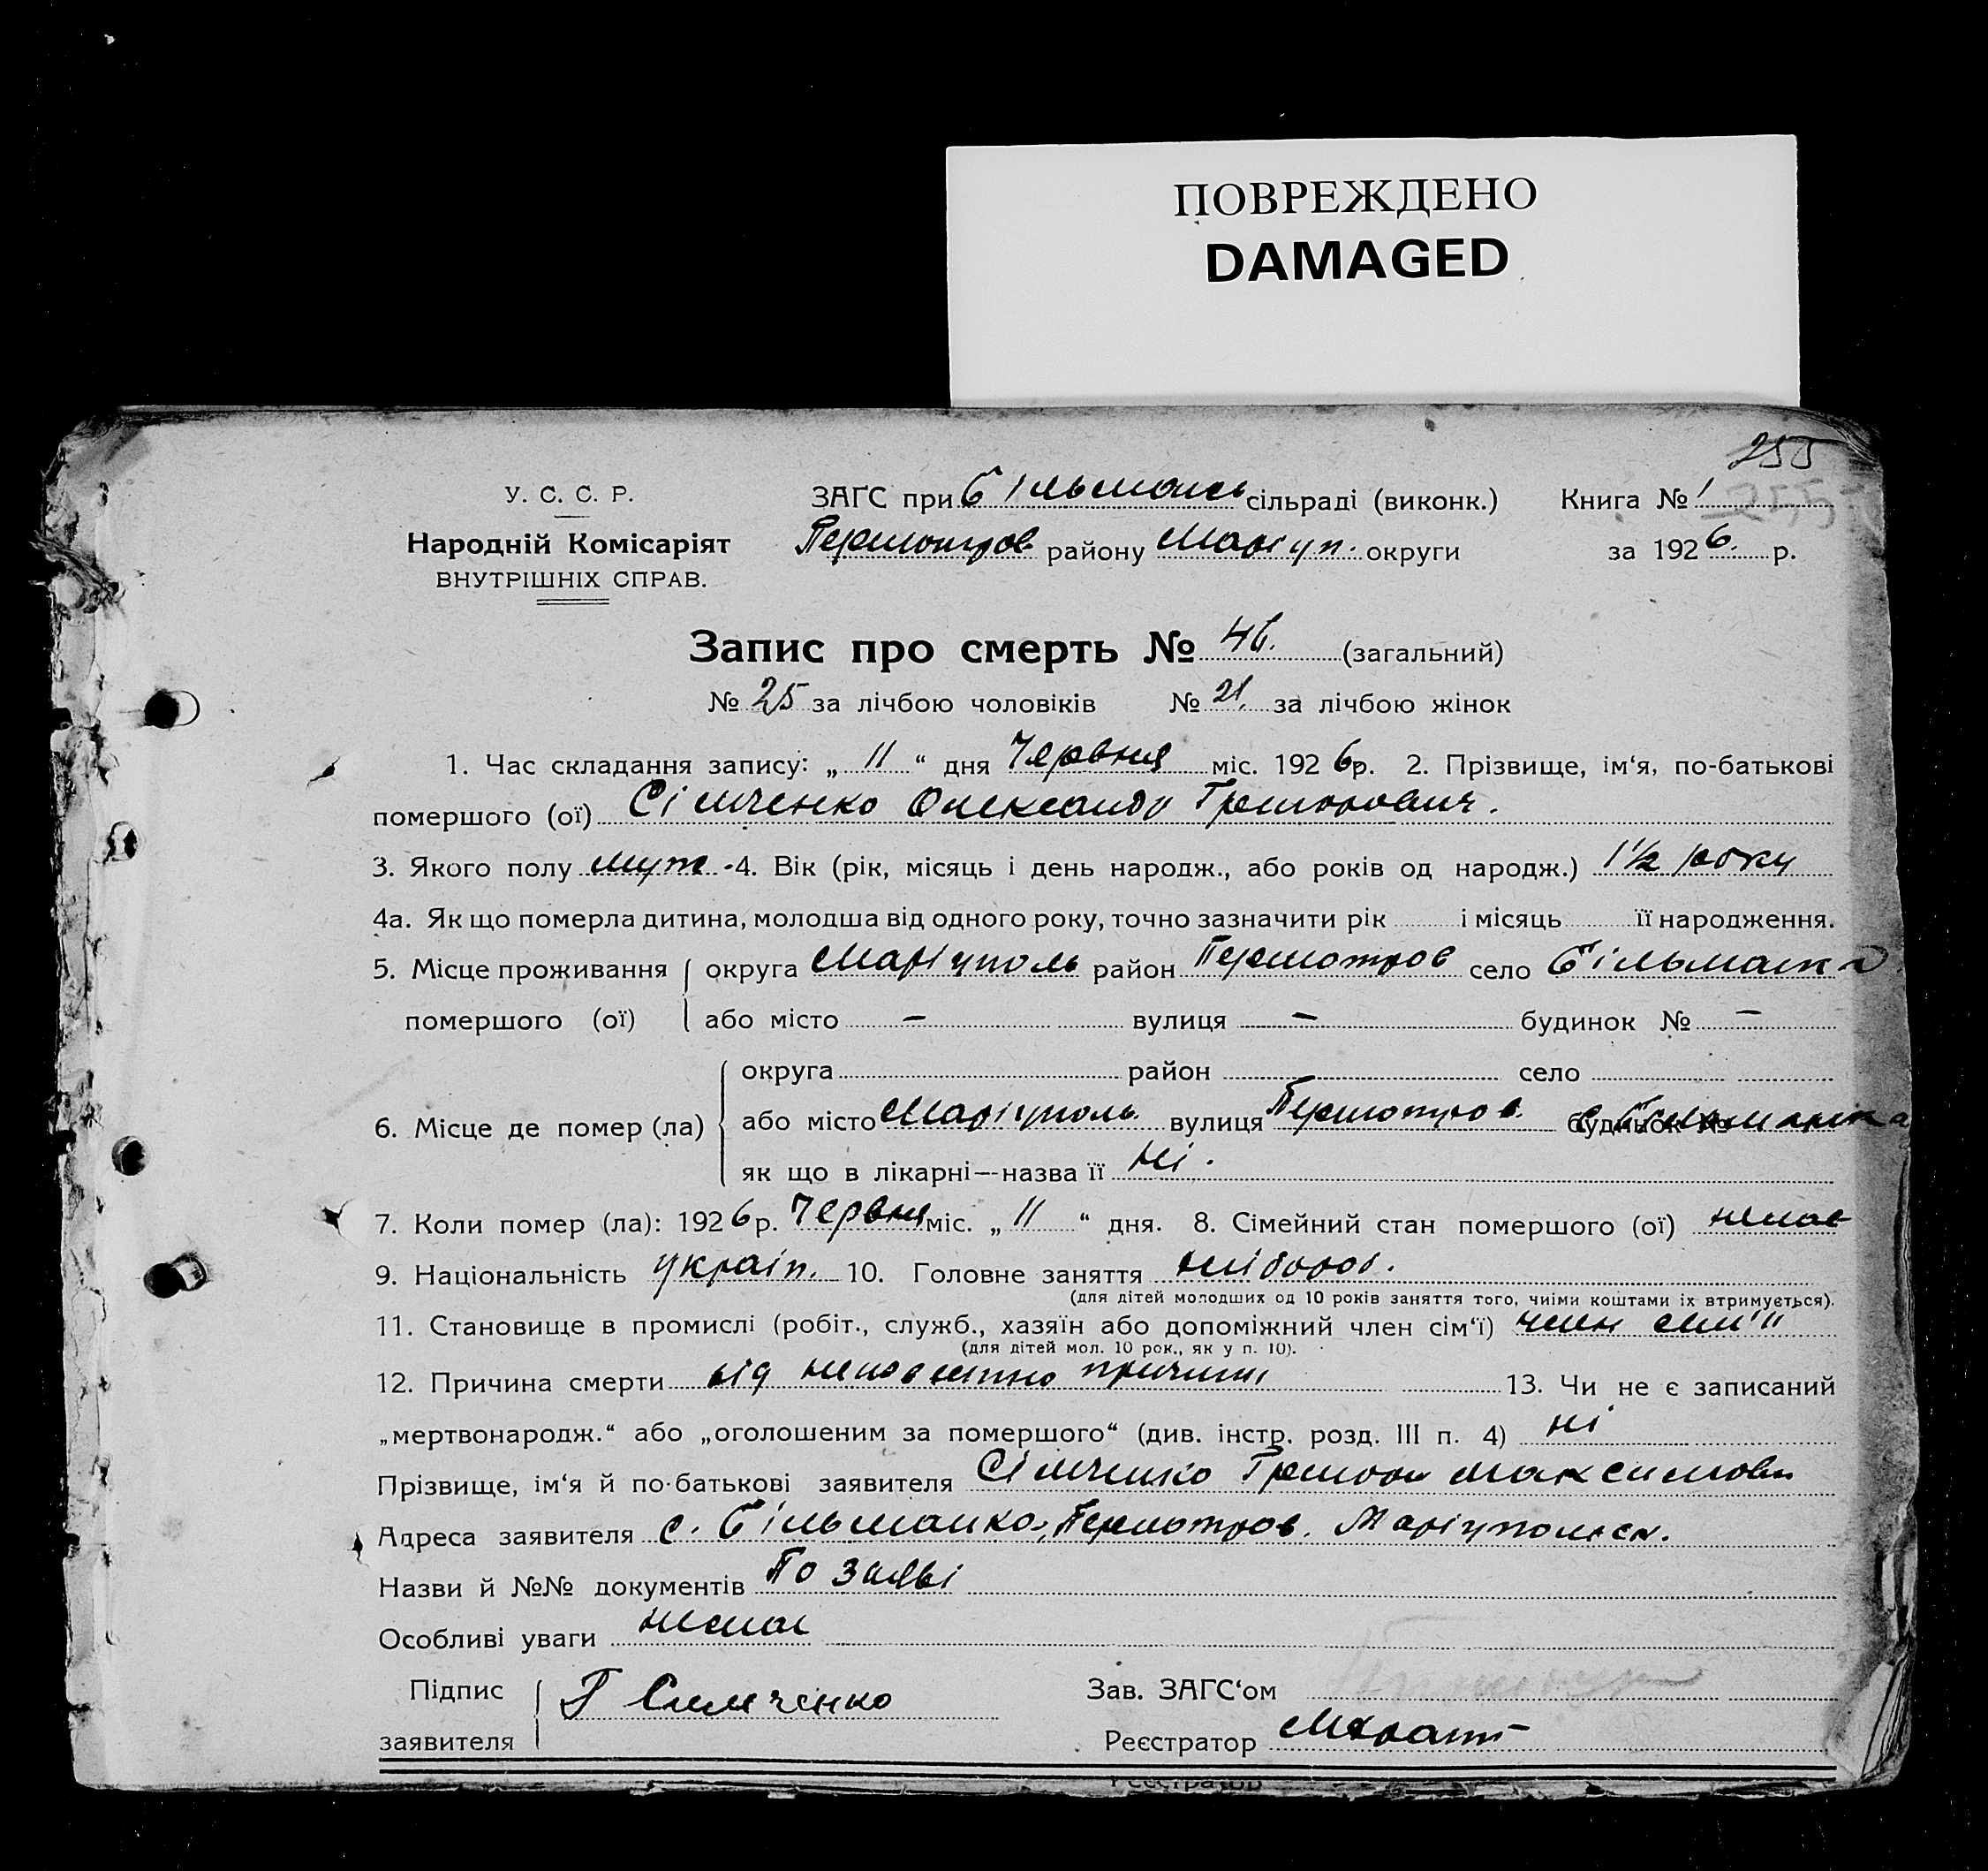 ПОВРЕЖДЕНО
DAMAGED
255
У. С. С. Р.
Народній Комісаріят
ВНУТРІШНІХ СПРАВ.
ЗАГС при Більмансь сільраді (виконк.) Книга № 1
району Маріуп. округи за 1926. р.
Запис про смерть № 46. (загальний)
№ 25 за лічбою чоловіків № 21. за лічбою жінок
1. Час складання запису: „ 11 “ дня Червня міс. 1926 р. 2. Прізвище, ім‘я, по-батькові
помершого (ої) Сімченко Олександр Григорович.
3. Якого полу муж. 4. Вік (рік, місяць і день народж., або років од народж.) 1½ року
4а. Як що померла дитина, молодша від одного року, точно зазначити рік і місяць її народження.
5. Місце проживання округа Маріуполь район село Більманка
помершого (ої) або місто – вулиця – будинок № –
округа район село
6. Місце де помер (ла) або місто Маріуполь вулиця будинок № с Більманка
як що в лікарні—назва її Ні.
7. Коли помер (ла): 1926 р. Червня міс. „ 11 “ дня. 8. Сімейний стан помершого (ої) немає
9. Національність україн. 10. Головне заняття хлібороб.
(для дітей молодших од 10 років заняття того, чиїми коштами їх втримується).
11. Становище в промислі (робіт., служб., хазяїн або допоміжний член сім‘ї) член сим'ї
(для дітей мол. 10 рок., як у п. 10).
12. Причина смерти від причини 13. Чи не є записаний
„мертвонародж.“ або „оголошеним за помершого“ (див. інстр. розд. III п. 4) ні
Прізвище, ім‘я й по-батькові заявителя Сімченко Григорій Максимови
Адреса заявителя с. Більманка, Маріупольск.
Назви й №№ документів По заяві
Особливі уваги немає
Підпис Г Симченко Зав. ЗАГС‘ом
заявителя Реєстратор
Реєстратор